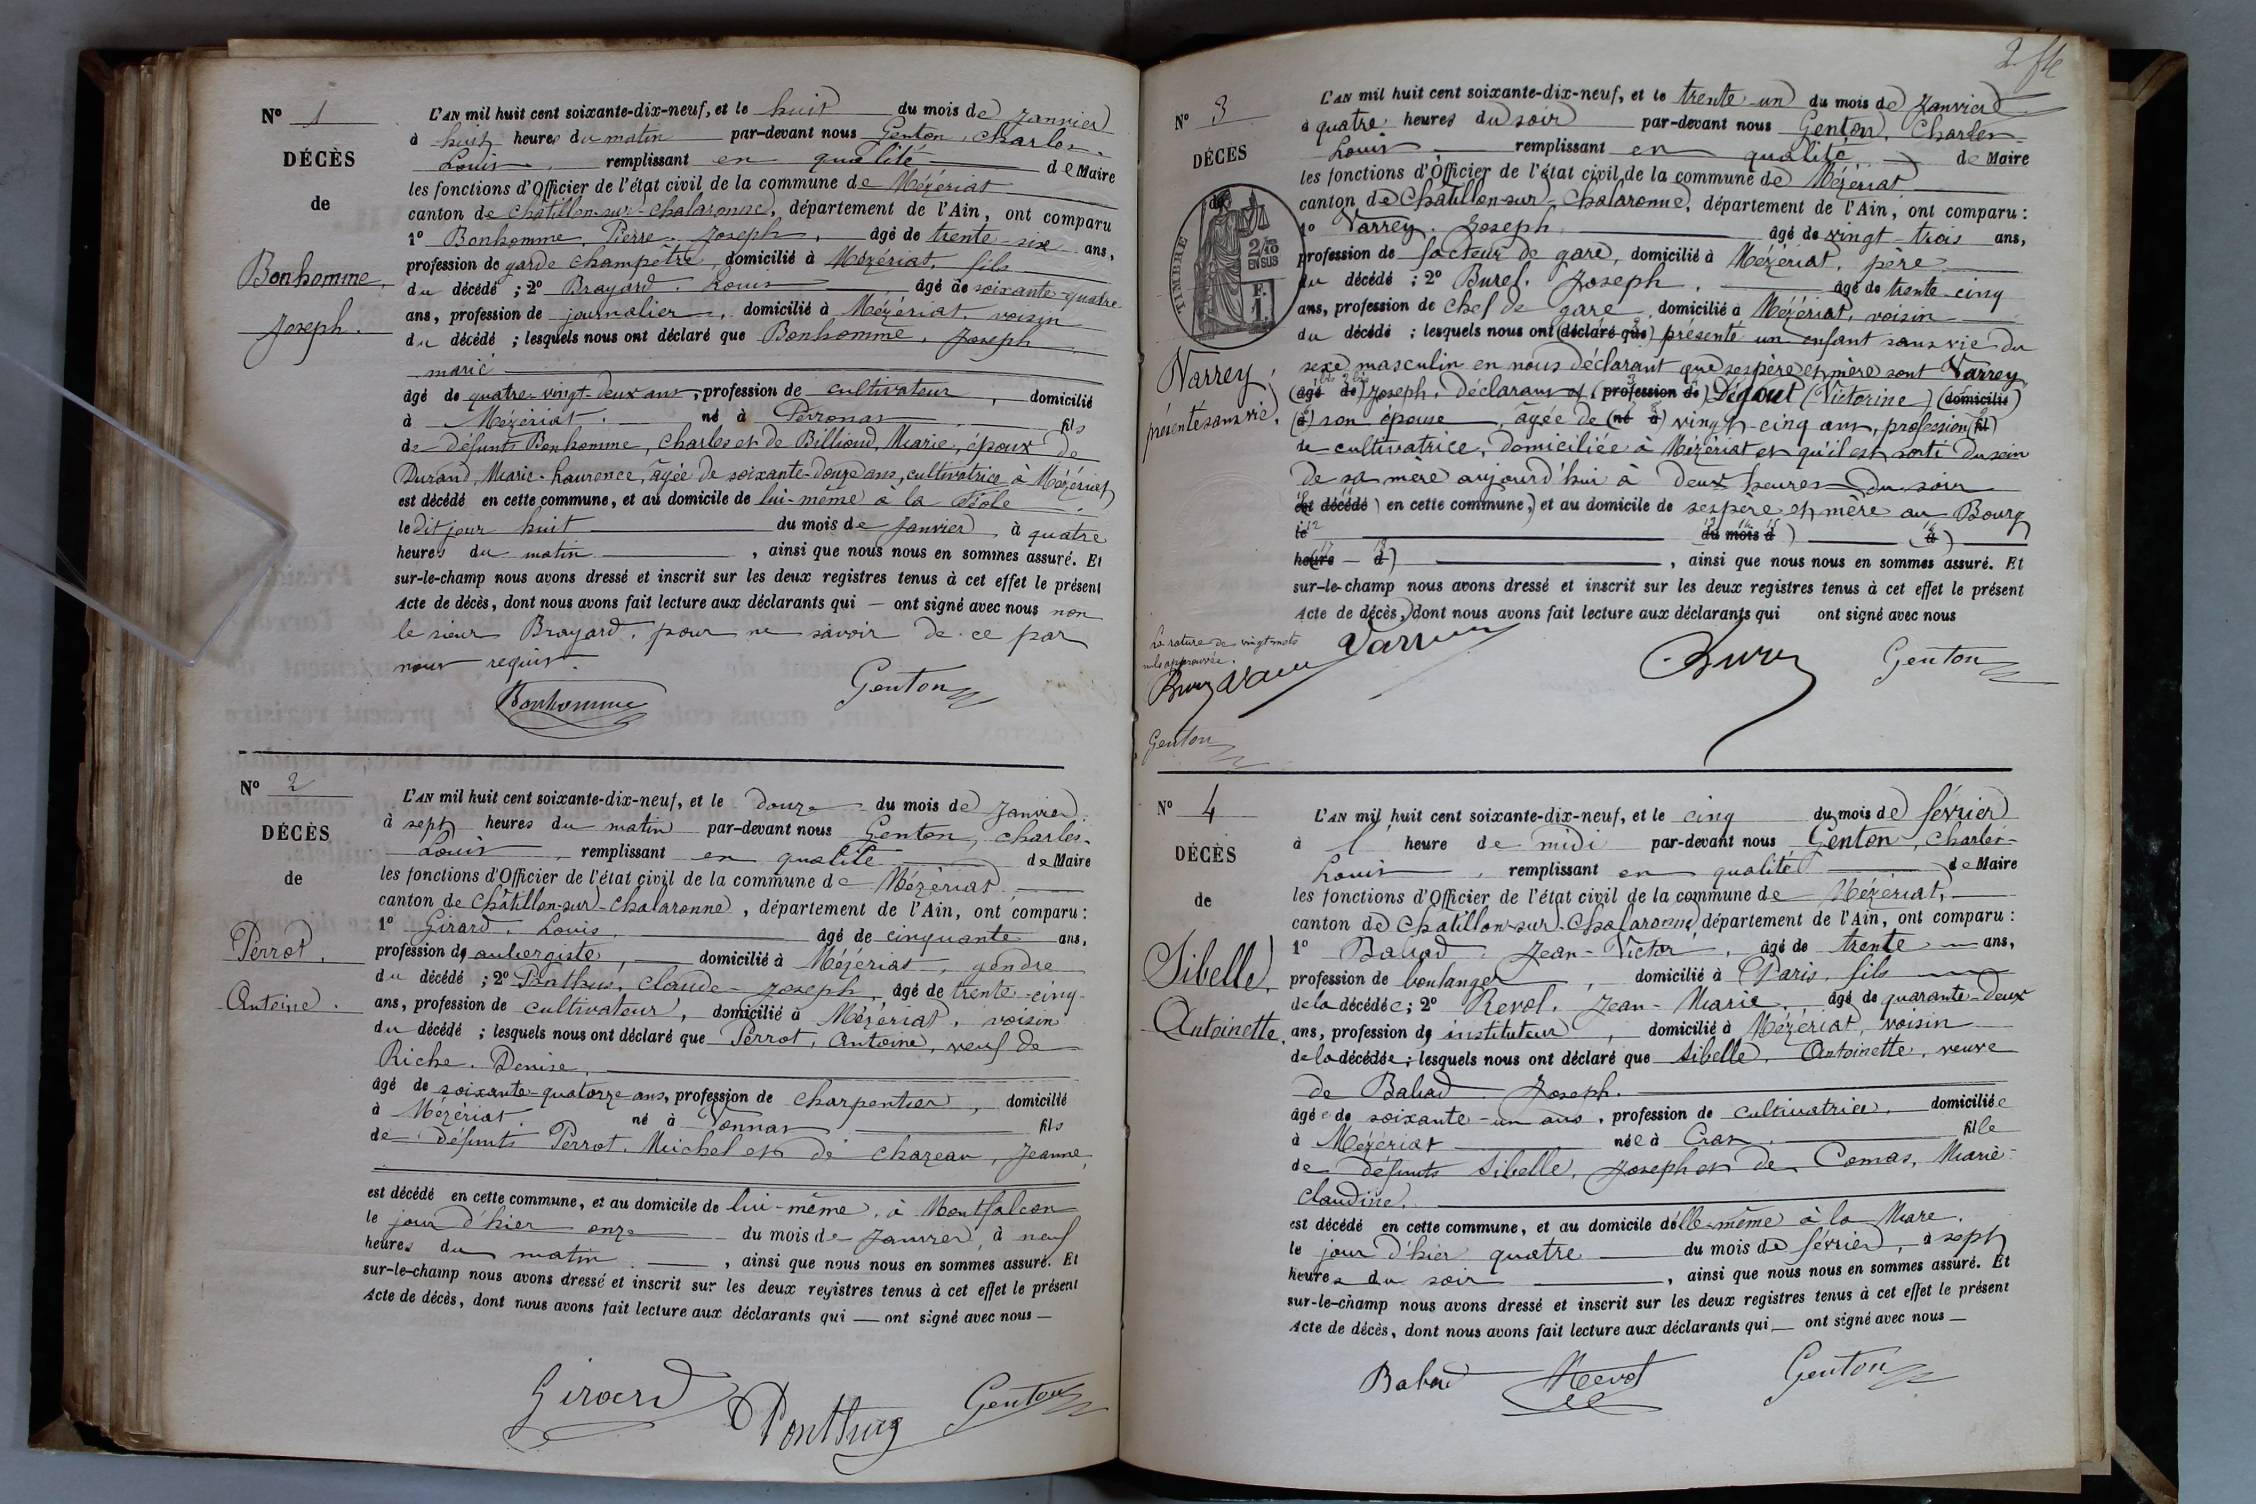 Nº 1
DÉCÈS
de
Bonhomme,
Joseph.
L'AN mil huit cent soixante-dix-neuf, et le huit du mois de Janvier
à huit heures du matin par-devant nous Genton, Charles-
Louis, remplissant en qualité de Maire
les fonctions d'Officier de l'état civil de la commune de Mézériat
canton de Châtillon-sur-Chalaronne, département de l'Ain, ont comparu
1º Bonhomme, Pierre-Joseph, âgé de trente-six ans,
profession de garde champêtre, domicilié à Mézériat, fils
du décédé ; 2º Brayard, Louis âgé de soixante-quatre
ans, profession de journalier, domicilié à Mézériat, voisin
du décédé ; lesquels nous ont déclaré que Bonhomme, Joseph
marié
âgé de quatre-vingt-deux ans, profession de cultivateur, domicilié
à Mézériat, né à Perronas, fils
de défunts Bonhomme, Charles et de Billioud, Marie, époux de
Durand, Marie-Laurence, âgée de soixante-douze ans, cultivatrice à Mézériat
est décédé en cette commune, et au domicile de lui-même à la
le dit jour huit du mois de Janvier, à quatre
heures du matin, ainsi que nous nous en sommes assuré. Et
sur-le-champ nous avons dressé et inscrit sur les deux registres tenus à cet effet le présent
Acte de décès, dont nous avons fait lecture aux déclarants qui — ont signé avec nous non
le sieur Brayard, pour ne savoir de ce par
nous requis.
Bonhomme Genton
Nº 2
DÉCÈS
de
Perrot,
Antoine.
L'AN mil huit cent soixante-dix-neuf, et le douze du mois de Janvier
à sept heures du matin par-devant nous Genton, Charles-
Louis, remplissant en qualité de Maire
les fonctions d'Officier de l'état civil de la commune de Mézériat
canton de Châtillon-sur-Chalaronne, département de l'Ain, ont comparu :
1º Girard, Louis, âgé de cinquante ans,
profession de aubergiste, domicilié à Mézériat, gendre
du décédé ; 2º Ponthus, Claude-Joseph, âgé de trente-cinq
ans, profession de cultivateur, domicilié à Mézériat, voisin
du décédé ; lesquels nous ont déclaré que Perrot, Antoine, veuf de
Riche, Denise,
âgé de soixante-quatorze ans, profession de charpentier, domicilié
à Mézériat, né à Vonnas, fils
de défunts Perrot, Michel et de Chazeau, Jeanne,
est décédé en cette commune, et au domicile de lui-même, à Montfalcon
le jour d'hier onze du mois de Janvier, à neuf
heures du matin, ainsi que nous nous en sommes assuré. Et
sur-le-champ nous avons dressé et inscrit sur les deux registres tenus à cet effet le présent
Acte de décès, dont nous avons fait lecture aux déclarants qui — ont signé avec nous —
Girard Ponthus Genton
Nº 3
DÉCÈS
de
TIMBRE
2/10
EN SUS
F.
1.
Varrey,
présenté sans vie.
L'AN mil huit cent soixante-dix-neuf, et le trente-un du mois de Janvier
à quatre heures du soir par-devant nous Genton, Charles-
Louis remplissant en qualité de Maire
les fonctions d'Officier de l'état civil de la commune de Mézériat
canton de Châtillon-sur-Chalaronne, département de l'Ain, ont comparu :
1º Varrey, Joseph, âgé de vingt-trois ans,
profession de facteur de gare, domicilié à Mézériat, père
du décédé ; 2º Burel, Joseph, âgé de trente-cinq
ans, profession de chef de gare, domicilié à Mézériat, voisin
du décédé ; lesquels nous ont (déclaré que) présenté un enfant sans vie du
sexe masculin en nous déclarant que ses père et mère sont Varrey
(âgé de) Joseph, déclarant et (profession de) Dégout (Victorine) (domicilié)
(à) son épouse, agée de (né à) vingt-cinq ans, profession (fils)
de cultivatrice, domiciliée à Mézériat et qu'il est sorti du sein
de sa mère aujourd'hui à deux heures du soir
est décédé) en cette commune, et au domicile de ses père et mère au Bourg
le du mois d ) à )
heure — d ) , ainsi que nous nous en sommes assuré. Et
sur-le-champ nous avons dressé et inscrit sur les deux registres tenus à cet effet le présent
Acte de décès, dont nous avons fait lecture aux déclarants qui ont signé avec nous
La rature de vingt mots
nuls approuvée.
Varrey Burel Genton
Genton
Nº 4
DÉCÈS
de
Sibelle,
Antoinette.
L'AN mil huit cent soixante-dix-neuf, et le cinq du mois de février
à 1 heure de midi par-devant nous Genton, Charles-
Louis, remplissant en qualité de Maire
les fonctions d'Officier de l'état civil de la commune de Mézériat,
canton de Chatillon-sur-Chalaronne, département de l'Ain, ont comparu :
1º Baliad, Jean-Victor, âgé de trente ans,
profession de boulanger, domicilié à Paris, fils
de la décédée ; 2º Revol, Jean-Marie, âgé de quarante-deux
ans, profession de instituteur, domicilié à Mézériat, voisin
de la décédée ; lesquels nous ont déclaré que Sibelle, Antoinette, veuve
de Baliad, Joseph.
âgée de soixante-un ans, profession de cultivatrice, domiciliée
à Mézériat née à Cras, fille
de défunts Sibelle, Joseph et de Comas, Marie-
Claudine,
est décédé en cette commune, et au domicile d'elle-même à la Mare.
le jour d'hier quatre du mois de février, à sept
heures du soir, ainsi que nous nous en sommes assuré. Et
sur-le-champ nous avons dressé et inscrit sur les deux registres tenus à cet effet le présent
Acte de décès, dont nous avons fait lecture aux déclarants qui — ont signé avec nous —
Revol Genton